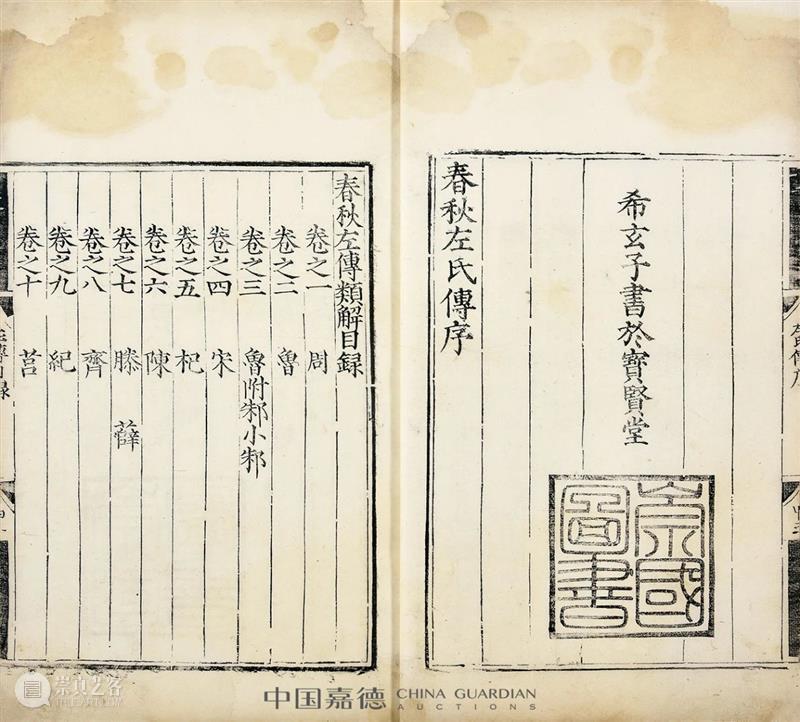 希玄子書於寶賢堂
崇國圖書
春秋左氏傳序
春秋左傳類解目録
卷之一 周
卷之二 魯
卷之三 魯附邾小邾
卷之四 宋
卷之五 杞
卷之六 陳
卷之七 滕 薛
卷之八 齊
卷之九 紀
卷之十 莒
崇真艺客
中国嘉德 CHINA GUARDIAN
AUCTIONS